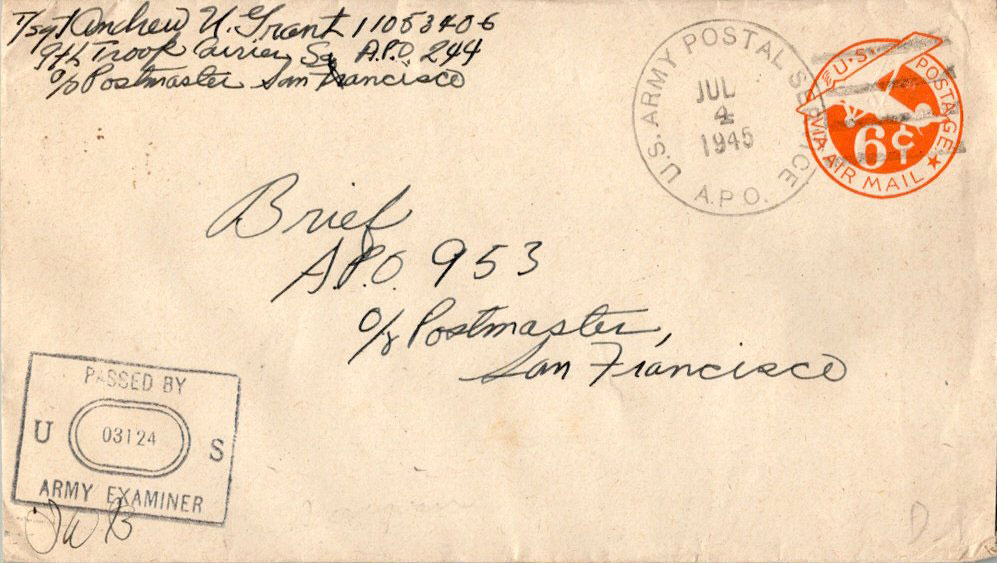 T/Sgt Andrew N. Grant 11053406
9th Troop Carrier Sq A.P.O. 244
c/o Postmaster San Francisco
U.S. ARMY POSTAL SERVICE
JUL
4
1945
A.P.O.
U.S. POSTAGE
6¢
VIA AIR MAIL
Brief
A.P.O. 953
c/o Postmaster,
San Francisco
PASSED BY
U 03124 S
ARMY EXAMINER